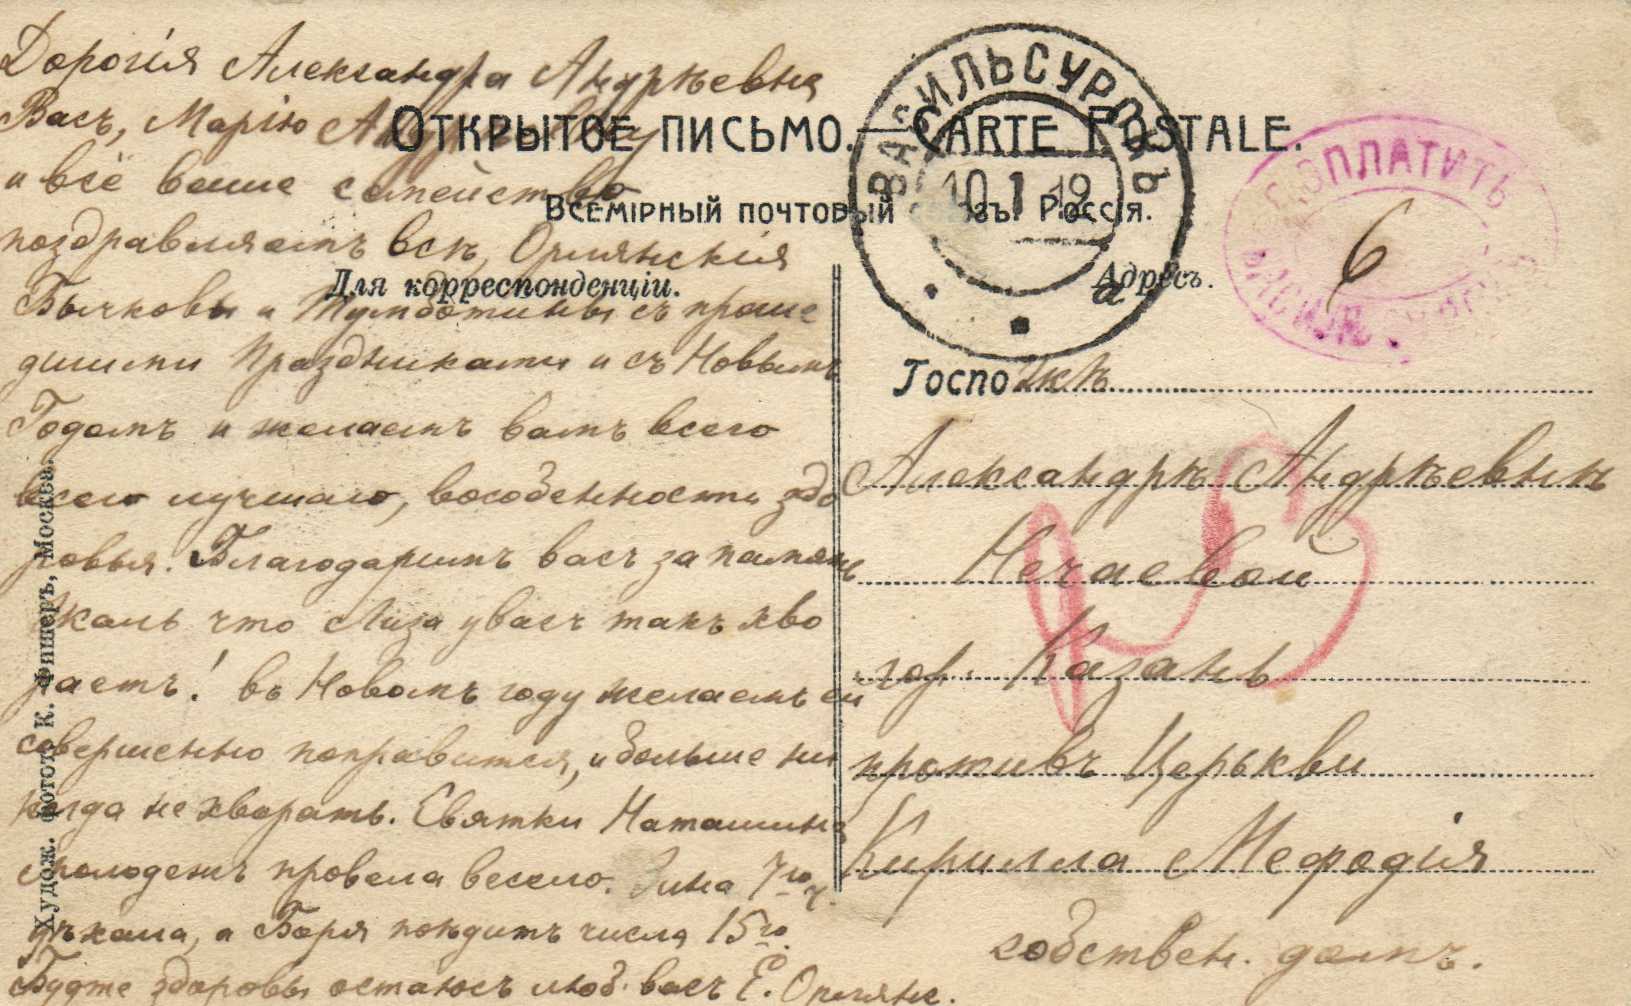 Дорогія Александра Андрѣевна
Васъ, Марію Андреевну
и всё ваше семейство
поздравляемъ всѣ, Орлянскія
Бычковы и Тумботины съ проше
дшими Праздниками и съ Новымъ
Годомъ и желаемъ вамъ всего
всего лучшаго, вособенности здо
ровья. Благодаримъ васъ за память
Жаль что Лиза увасъ такъ хво
раетъ! въ Новомъ году желаемъ ей
совершенно поправится, и больше ни
когда не хворать. Святки Наташина
молодежъ провела весело. Зина 7го у
ѣхала, а Боря поѣдитъ числа 15го.
Будте здоровы остаюсъ люб. васъ Е. Орлянс.
ОТКРЫТОЕ ПИСЬМО. — CARTE POSTALE.
ВСЕМІРНЫЙ ПОЧТОВЫЙ СОЮЗЪ. РОССІЯ.
Для корреспонденціи.
Адресъ.
ВАСИЛЬСУРСКЪ
10 1 12
а
ДОПЛАТИТЬ
6
Госпожѣ
Александрѣ Андрѣевнѣ
Нечаевой
гор. Казань
противъ Церькви
Кирилла Мефодія
собствен. домъ.
Худож. фотот. К. Фишеръ, Москва.